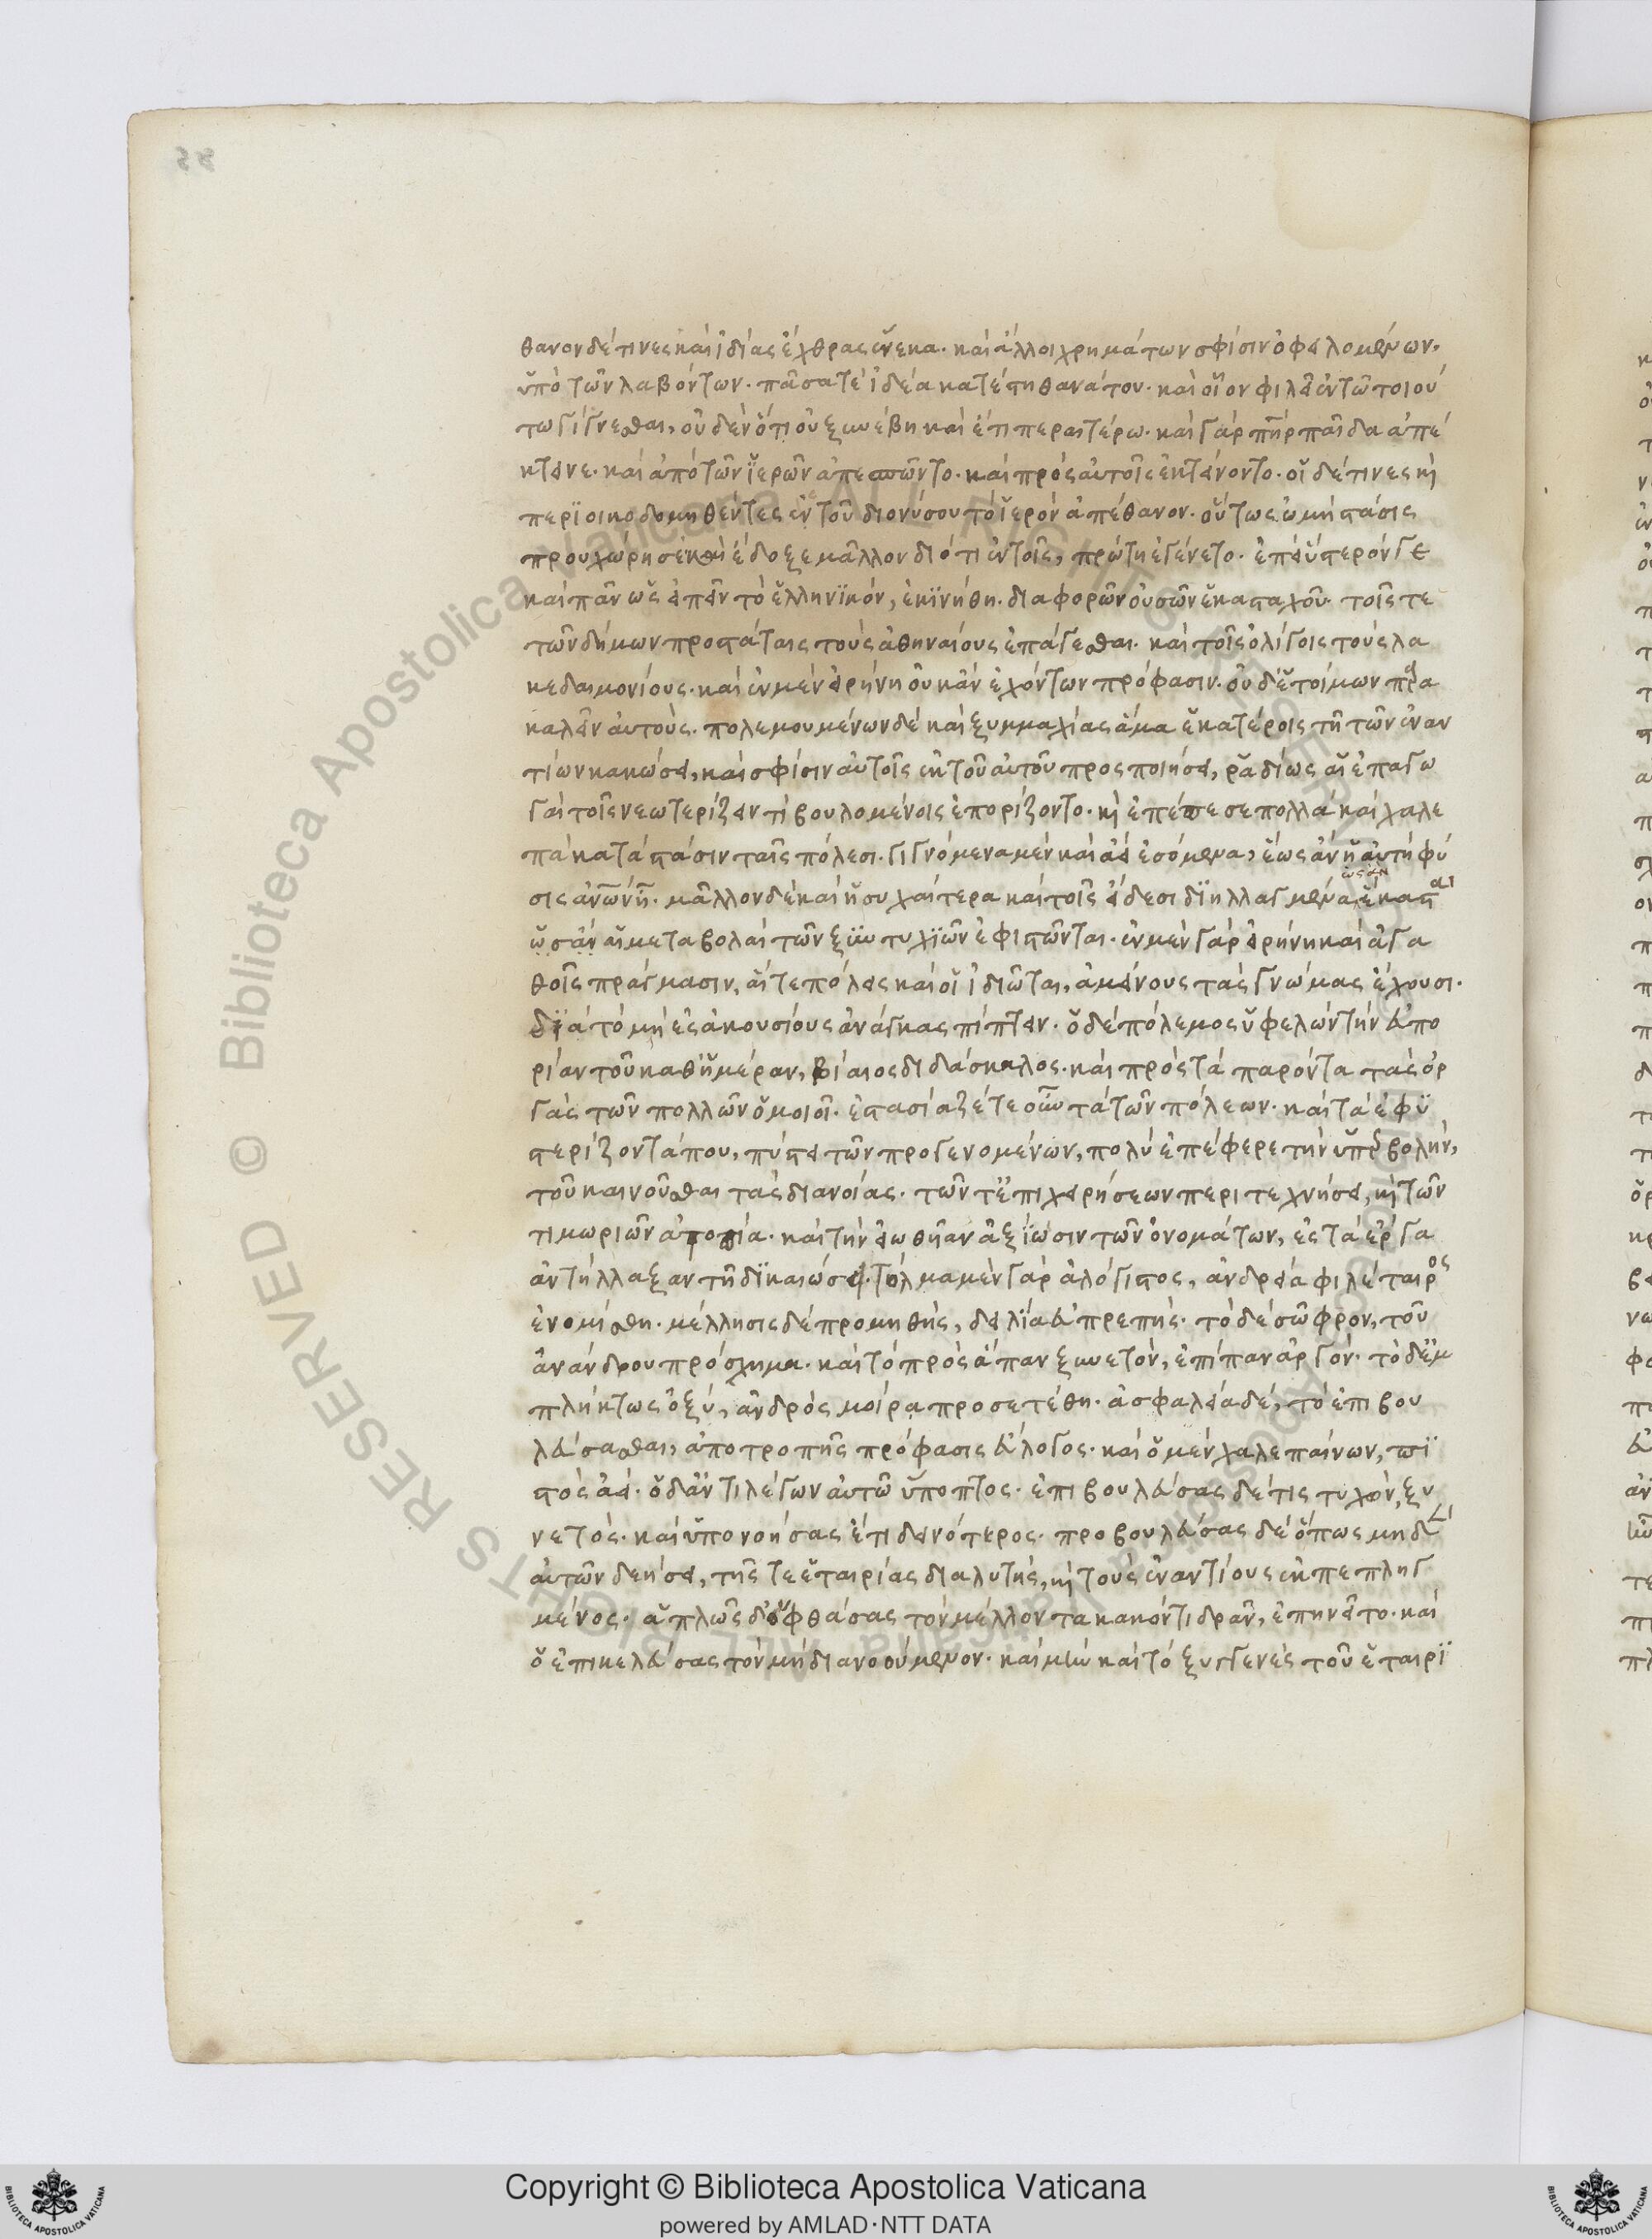 θανον δέ τινες καὶ ἰδίας ἔχθρας ἕνεκα. καὶ ἄλλοι χρημάτων σφίσιν ὀφειλομένων.
ὑπὸ τῶν λαβόντων. πᾶσα τὲ ἰδέα κατέστη θανάτου. καὶ οἷον φιλεῖ ἐν τῶ τοιού
τω γίγνεσθαι, οὐδὲν ὅτι οὐ ξυνέβη καὶ ἔτι περαιτέρω. καὶ γὰρ πὴρ παῖδα ἀπέ
κτεινε. καὶ ἀπὸ τῶν ἱερῶν ἀπεσπῶντο. καὶ πρὸς αὐτοῖς ἐκτείνοντο. οἱ δέ τινες καὶ
περϊοικοδομηθέντες ἐν τοῦ διονύσου τὸ ἱερὸν ἀπέθανον. οὕτως ὠμὴ στάσις
προυχώρησε καὶ ἔδοξε μᾶλλον διότι ἐν τοῖς, πρώτη ἐγένετο. ἐπεὶ ὕστερόν γε
καὶ πᾶν ὡς εἰπεῖν τὸ ἑλληνϊκὸν, ἐκϊνήθη. διαφορῶν οὐσῶν ἑκασταχοῦ. τοῖς τε
τῶν δήμων προστάταις τοὺς ἀθηναίους ἐπάγεσθαι. καὶ τοῖς ὀλίγοις τοὺς λα
κεδαιμονίους. καὶ ἐν μὲν εἰρήνη οὐκ ἂν ἐχόντων πρόφασιν. οὐδ' ἑτοίμων παρα
καλεῖν αὐτούς. πολεμουμένων δὲ καὶ ξυμμαχίας ἅμα ἑκατέροις τῆ τῶν ἐναν
τίων κακώσει, καὶ σφίσιν αὐτοῖς ἐκ τοῦ αὐτοῦ προσποιήσει, ῥαδίως αἱ ἐπαγω
γαὶ τοῖς νεωτερίζειν τὶ βουλομένοις ἐπορίζοντο. καὶ ἐπέπεσε πολλὰ καὶ χαλε
πὰ κατὰ στάσιν ταῖς πόλεσι. γιγνόμενα μὲν καὶ ἀεὶ ἐσόμενα, ἕως ἂν ἡ αὐτὴ φύ
σις ἀνων ἦ. μᾶλλον δὲ καὶ ἡσυχαίτερα καὶ τοῖς εἴδεσι δϊηλλαγμένα, ὡς ἂν ἕκασται
ὡς ἂν αἱ μεταβολαὶ τῶν ξυντυχϊῶν ἐφιστῶνται. ἐν μὲν γὰρ εἰρήνη καὶ ἀγα
θοῖς πράγμασιν, αἵ τε πόλεις καὶ οἱ ἰδιῶται, ἀμείνους τὰς γνώμας ἔχουσι.
δϊὰ τὸ μὴ ἐς ἀκουσίους ἀνάγκας πίπτειν. ὁ δὲ πόλεμος ὑφελὼν τὴν εὐπο
ρίαν τοῦ καθ' ἡμέραν, βίαιος διδάσκαλος. καὶ πρὸς τὰ παρόντα τὰς ὀρ
γὰς τῶν πολλῶν ὁμοιοῖ. ἐστασίαζέ τε οὖν τὰ τῶν πόλεων. καὶ τὰ ἐφϋ
στερίζοντά που, πύστει τῶν προγενομένων, πολὺ ἐπέφερε τὴν ὑπερβολὴν,
τοῦ καινοῦσθαι τὰς διανοίας. τῶν τ' ἐπιχειρήσεων περιτεχνήσει, καὶ τῶν
τιμωριῶν ἀτοπία. καὶ τὴν εἰωθῆαν ἀξϊωσιν τῶν ὀνομάτων, ἐς τὰ ἔργα
ἀντήλλαξαν τῆ δϊκαιώσει. τόλμα μὲν γὰρ ἀλόγιστος, ἀνδρεία φιλέταιρος
ἐνομίσθη. μέλλησις δὲ προμηθὴς, δειλΐα εὐπρεπής. τὸ δὲ σῶφρον, τοῦ
ἀνάνδρου πρόσχημα. καὶ τὸ πρὸς ἅπαν ξυνετὸν, ἐπίπαν ἀργόν. τὸ δ' ἐμ
πλήκτως ὀξὺ, ἀνδρὸς μοίρα προσετέθη. ἀσφαλεία δὲ, τὸ ἐπιβου
λεύσασθαι, ἀποτροπῆς πρόφασις εὔλογος. καὶ ὁ μὲν χαλεπαίνων, πϊ
στὸς ἀεί. ὁ δ' ἀντιλέγων αὐτῶ ὕποπτος. ἐπιβουλεύσας δέ τις τυχὼν, ξυ
νετός. καὶ ὑπονοήσας ἔτι δεινότερος. προβουλεύσας δὲ ὅπως μηδὲν
αὐτῶν δεήσει, τῆς τε ἑταιρίας διαλυτὴς, καὶ τοὺς ἐναντίους ἐκπεπληγ
μένος. ἁπλῶς δ' ὁ φθάσας τὸν μέλλοντα κακόν τι δρᾶν, ἐπηνεῖτο. καὶ
ὁ ἐπικελεύσας τὸν μὴ διανοούμενον. καὶ μὴν καὶ τὸ ξυγγενὲς τοῦ ἑταιρϊ
Biblioteca Apostolica Vaticana
ALL RIGHTS RESERVED ©
Copyright © Biblioteca Apostolica Vaticana
powered by AMLAD·NTT DATA
BIBLIOTECA APOSTOLICA VATICANA
BIBLIOTECA APOSTOLICA VATICANA